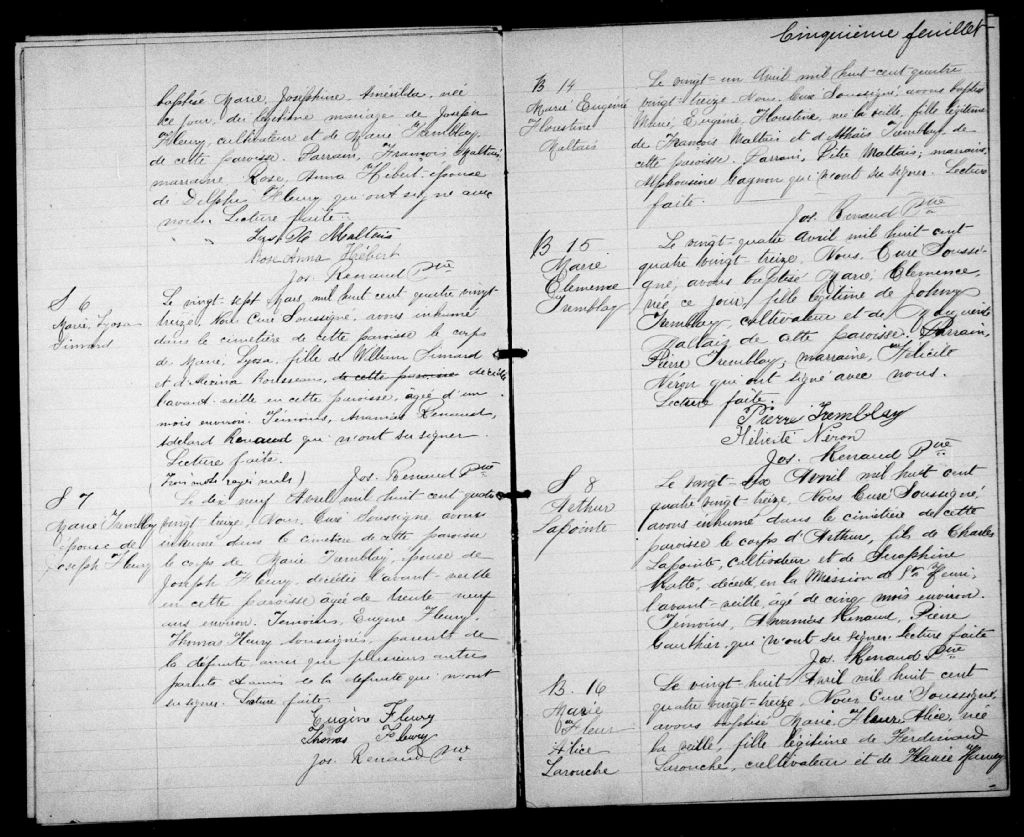 baptisé Marie, Joséphine, Amérilda, née
ce jour, du légitime mariage de Joseph
Fleury, cultivateur et de Marie Tremblay,
de cette paroisse. Parrain, François Maltais,
marraine Rose, Anna Hébert, épouse
de Delphis Fleury qui ont signé avec
nous. Lecture faite.
Maltais
Rose Anna Hébert
Jos. Renaud Ptre
S 6
Marie, Lyosa
Simard
Le vingt-sept Mars, mil huit cent quatre vingt
treize, Nous Curé Soussigné, avons inhumé
dans le cimetière de cette paroisse le corps
de Marie, Lyosa, fille de William Simard
et d'Alexina Rousseau, de cette paroisse décédée
l'avant-veille en cette paroisse, agée d'un
mois environ. Témoins, Ananias Renaud,
Adelard Renaud qui n'ont su signer.
Lecture faite.
(Trois mots rayés nuls) Jos. Renaud Ptre
S 7
Marie Tremblay
épouse de
Joseph Fleury
Le dix neuf Avril mil huit cent quatre
vingt-treize, Nous, Curé Soussigné avons
inhumé dans le cimetière de cette paroisse
le corps de Marie Tremblay, épouse de
Joseph Fleury, décédée l'avant-veille
en cette paroisse agée de trente neuf
ans environ. Témoins, Eugène Fleury,
Thomas Fleury soussignés, parents de
la défunte ainsi que plusieurs autres
parents & amis de la défunte qui n'ont
su signer. Lecture faite.
Eugène Fleury
Thomas Fleury
Jos. Renaud Ptre
Cinquième feuillet
B 14
Marie Eugénie
Florestine
Maltais
Le vingt-un Avril mil huit-cent quatre
vingt-treize. Nous, Curé Soussigné, avons baptisé
Marie, Eugénie, Florestine, née la veille, fille légitime
de François Maltais et d'Athaïs Tremblay de
cette paroisse. Parrain, Pitre Maltais; marraine,
Alphonsine Gagnon qui n'ont su signer. Lecture
faite.
Jos. Renaud Ptre
B 15
Marie
Clemence
Tremblay
Le vingt-quatre Avril mil huit cent
quatre vingt-treize. Nous, Curé Soussi-
gné, avons baptisé Marie, Clemence,
née ce jour, fille légitime de Johnny
Tremblay, cultivateur et de
Maltais de cette paroisse. Parrain,
Pierre Tremblay; marraine, Félicité
Néron qui ont signé avec nous.
Lecture faite.
Pierre Tremblay
Félicité Néron
Jos. Renaud Ptre
S 8
Arthur
Lapointe
Le vingt-six Avril mil huit cent
quatre vingt-treize, Nous Curé Soussigné,
avons inhumé dans le cimetière de cette
paroisse le corps d'Arthur, fils de Charles
Lapointe, cultivateur et de Séraphine
décédé en la Mission de St Henri,
l'avant-veille, âgé de cinq mois environ.
Témoins, Ananias Renaud, Pierre
Gauthier qui n'ont su signer. Lecture faite
Jos. Renaud Ptre
B. 16
Marie
Fleur
Alice
Larouche
Le vingt-huit Avril mil huit cent
quatre vingt-treize, Nous Curé Soussigné,
avons baptisé Marie, Fleur, Alice, née
la veille, fille légitime de Ferdinand
Larouche, cultivateur et de